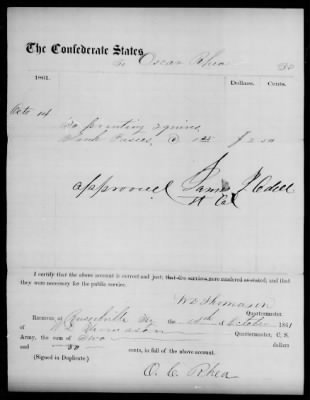 The Confederate States
To Oscar Rhea
1861.
Dollars. Cents.
Octo 14
To printing 2 quires
Blank Passes, @ 1.00 $ 2.00
Approved
Lt Col
I certify that the above account is correct and just; that the services were rendered as stated; and that
they were necessary for the public service.
Quartermaster
Received, at Russellville Ky the 14th of October 1861
of Quartermaster, C. S.
Army, the sum of two dollars
and cents, in full of the above account.
(Signed in Duplicate.)
O. C. Rhea